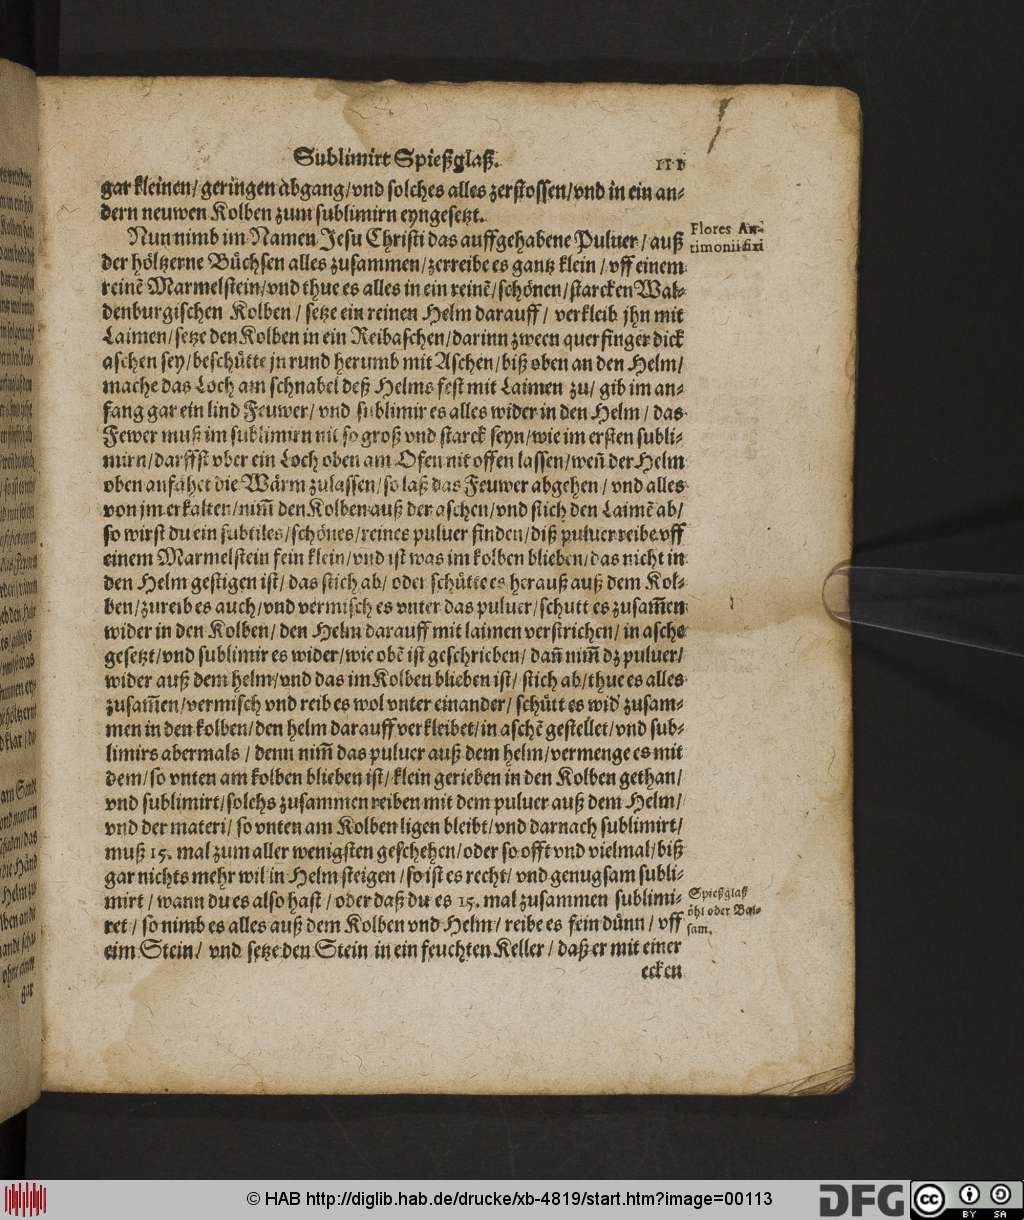 Sublimirt Spießglaß. 111
gar kleinen/ geringen abgang/ vnd solches alles zerstossen/ vnd in ein an-
dern neuwen Kolben zum sublimirn eyngesetzt.
Nun nimb im Namen Jesu Christi das auffgehabene Puluer/ auß
Flores An-
timonii fixi
der höltzerne Büchsen alles zusammen/ zerreibe es gantz klein/ vff einem
reinē Marmelstein/ vnd thue es alles in ein reinē/ schönen/ starcken Wal-
denburgischen Kolben/ setze ein reinen Helm darauff/ verkleib jhn mit
Laimen/ setze den Kolben in ein Reibaschen/ darinn zween querfinger dick
aschen sey/ beschütte jn rund herumb mit Aschen/ biß oben an den Helm/
mache das Loch am schnabel deß Helms fest mit Laimen zu/ gib im an-
fang gar ein lind Feuwer/ vnd sublimir es alles wider in den Helm/ das
Fewer muß im sublimirn nit so groß vnd starck seyn/ wie im ersten subli-
mirn/ darffst vber ein Loch oben am Ofen nit offen lassen/ weñ der Helm
oben anfähet die Wärm zulassen/ so laß das Feuwer abgehen/ vnd alles
von jm erkalten/ nim̃ den Kolben auß der aschen/ vnd stich den Laimē ab/
so wirst du ein subtiles/ schönes/ reines puluer finden/ diß puluer reibe vff
einem Marmelstein fein klein/ vnd ist was im kolben blieben/ das nicht in
den Helm gestigen ist/ das stich ab/ oder schütte es herauß auß dem Kol-
ben/ zureib es auch/ vnd vermisch es vnter das puluer/ schutt es zusam̃en
wider in den Kolben/ den Helm darauff mit laimen verstrichen/ in asche
gesetzt/ vnd sublimir es wider/ wie obē ist geschrieben/ dañ nim̃ dz puluer/
wider auß dem helm/ vnd das im Kolben blieben ist/ stich ab/ thue es alles
zusam̃en/ vermisch vnd reib es wol vnter einander/ schütt es wid' zusam-
men in den kolben/ den helm darauff verkleibet/ in aschē gestellet/ vnd sub-
limirs abermals/ denn nim̃ das puluer auß dem helm/ vermenge es mit
dem/ so vnten am kolben blieben ist/ klein gerieben in den Kolben gethan/
vnd sublimirt/ solchs zusammen reiben mit dem puluer auß dem Helm/
vnd der materi/ so vnten am Kolben ligen bleibt/ vnd darnach sublimirt/
muß 15. mal zum aller wenigsten geschehen/ oder so offt vnd vielmal/ biß
gar nichts mehr wil in Helm steigen/ so ist es recht/ vnd genugsam subli-
mirt/ wann du es also hast/ oder daß du es 15. mal zusammen sublimi-
Spießglaß
öhl oder Bal-
sam.
ret/ so nimb es alles auß dem Kolben vnd Helm/ reibe es fein dünn/ vff
eim Stein/ vnd setze den Stein in ein feuchten Keller/ daß er mit einer
ecken
© HAB http://diglib.hab.de/drucke/xb-4819/start.htm?image=00113
DFG
cc BY SA